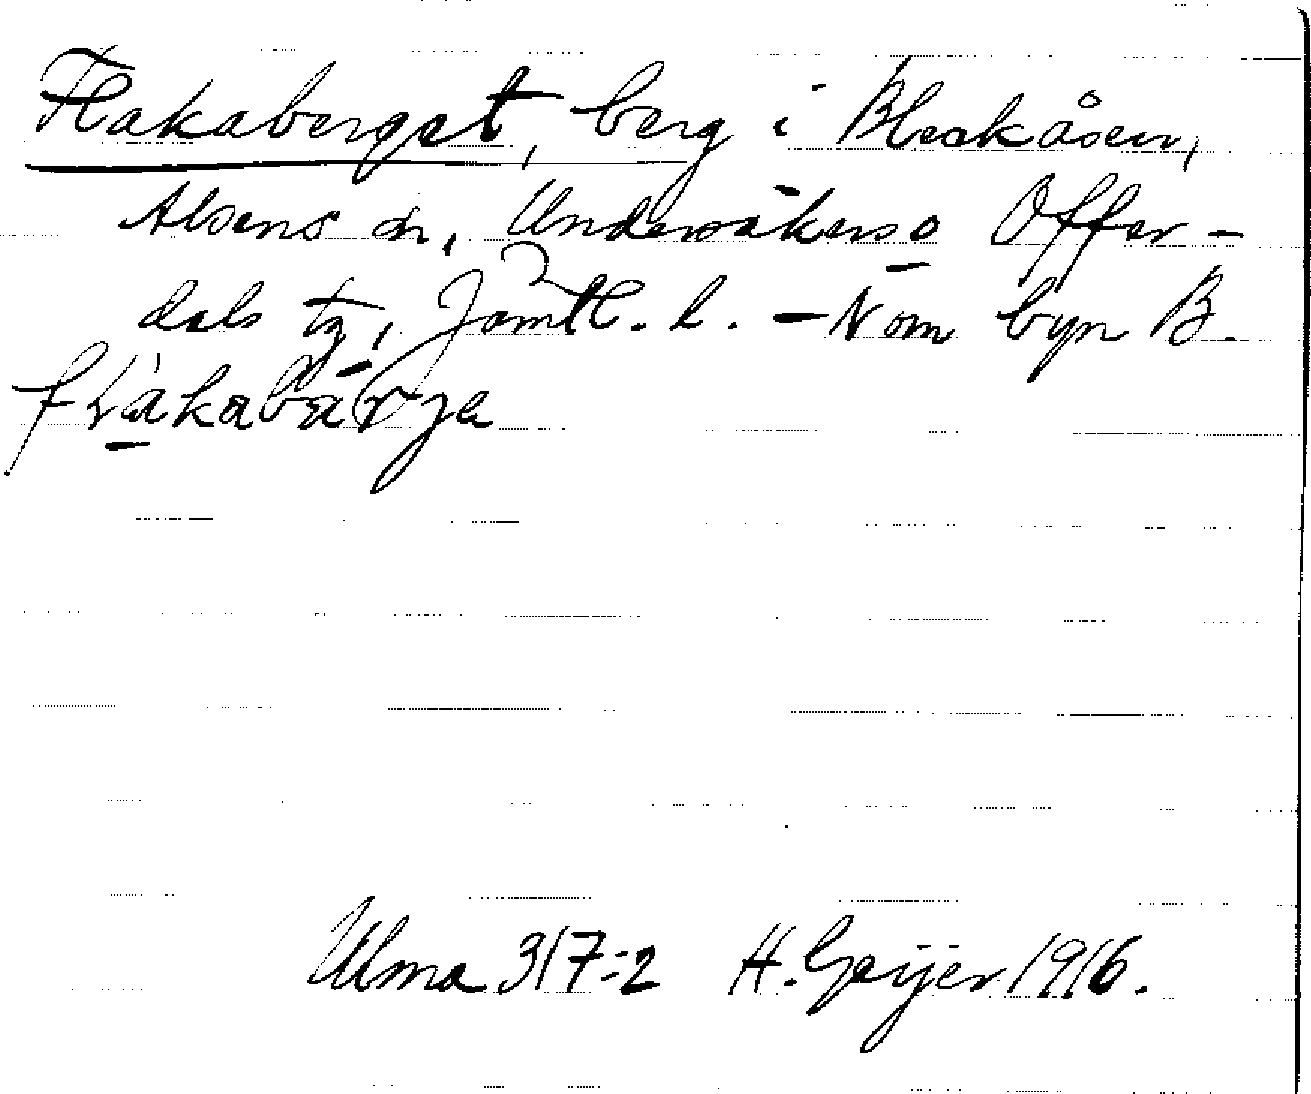 Flakaberget, berg i Bleckåsen,
Alsens sn, Undersåkers o Offer-
dals tg, Jämtl. l. – N om byn B.
flàkabár̀ja
Ulma 317:2 H. Geijer 1916.